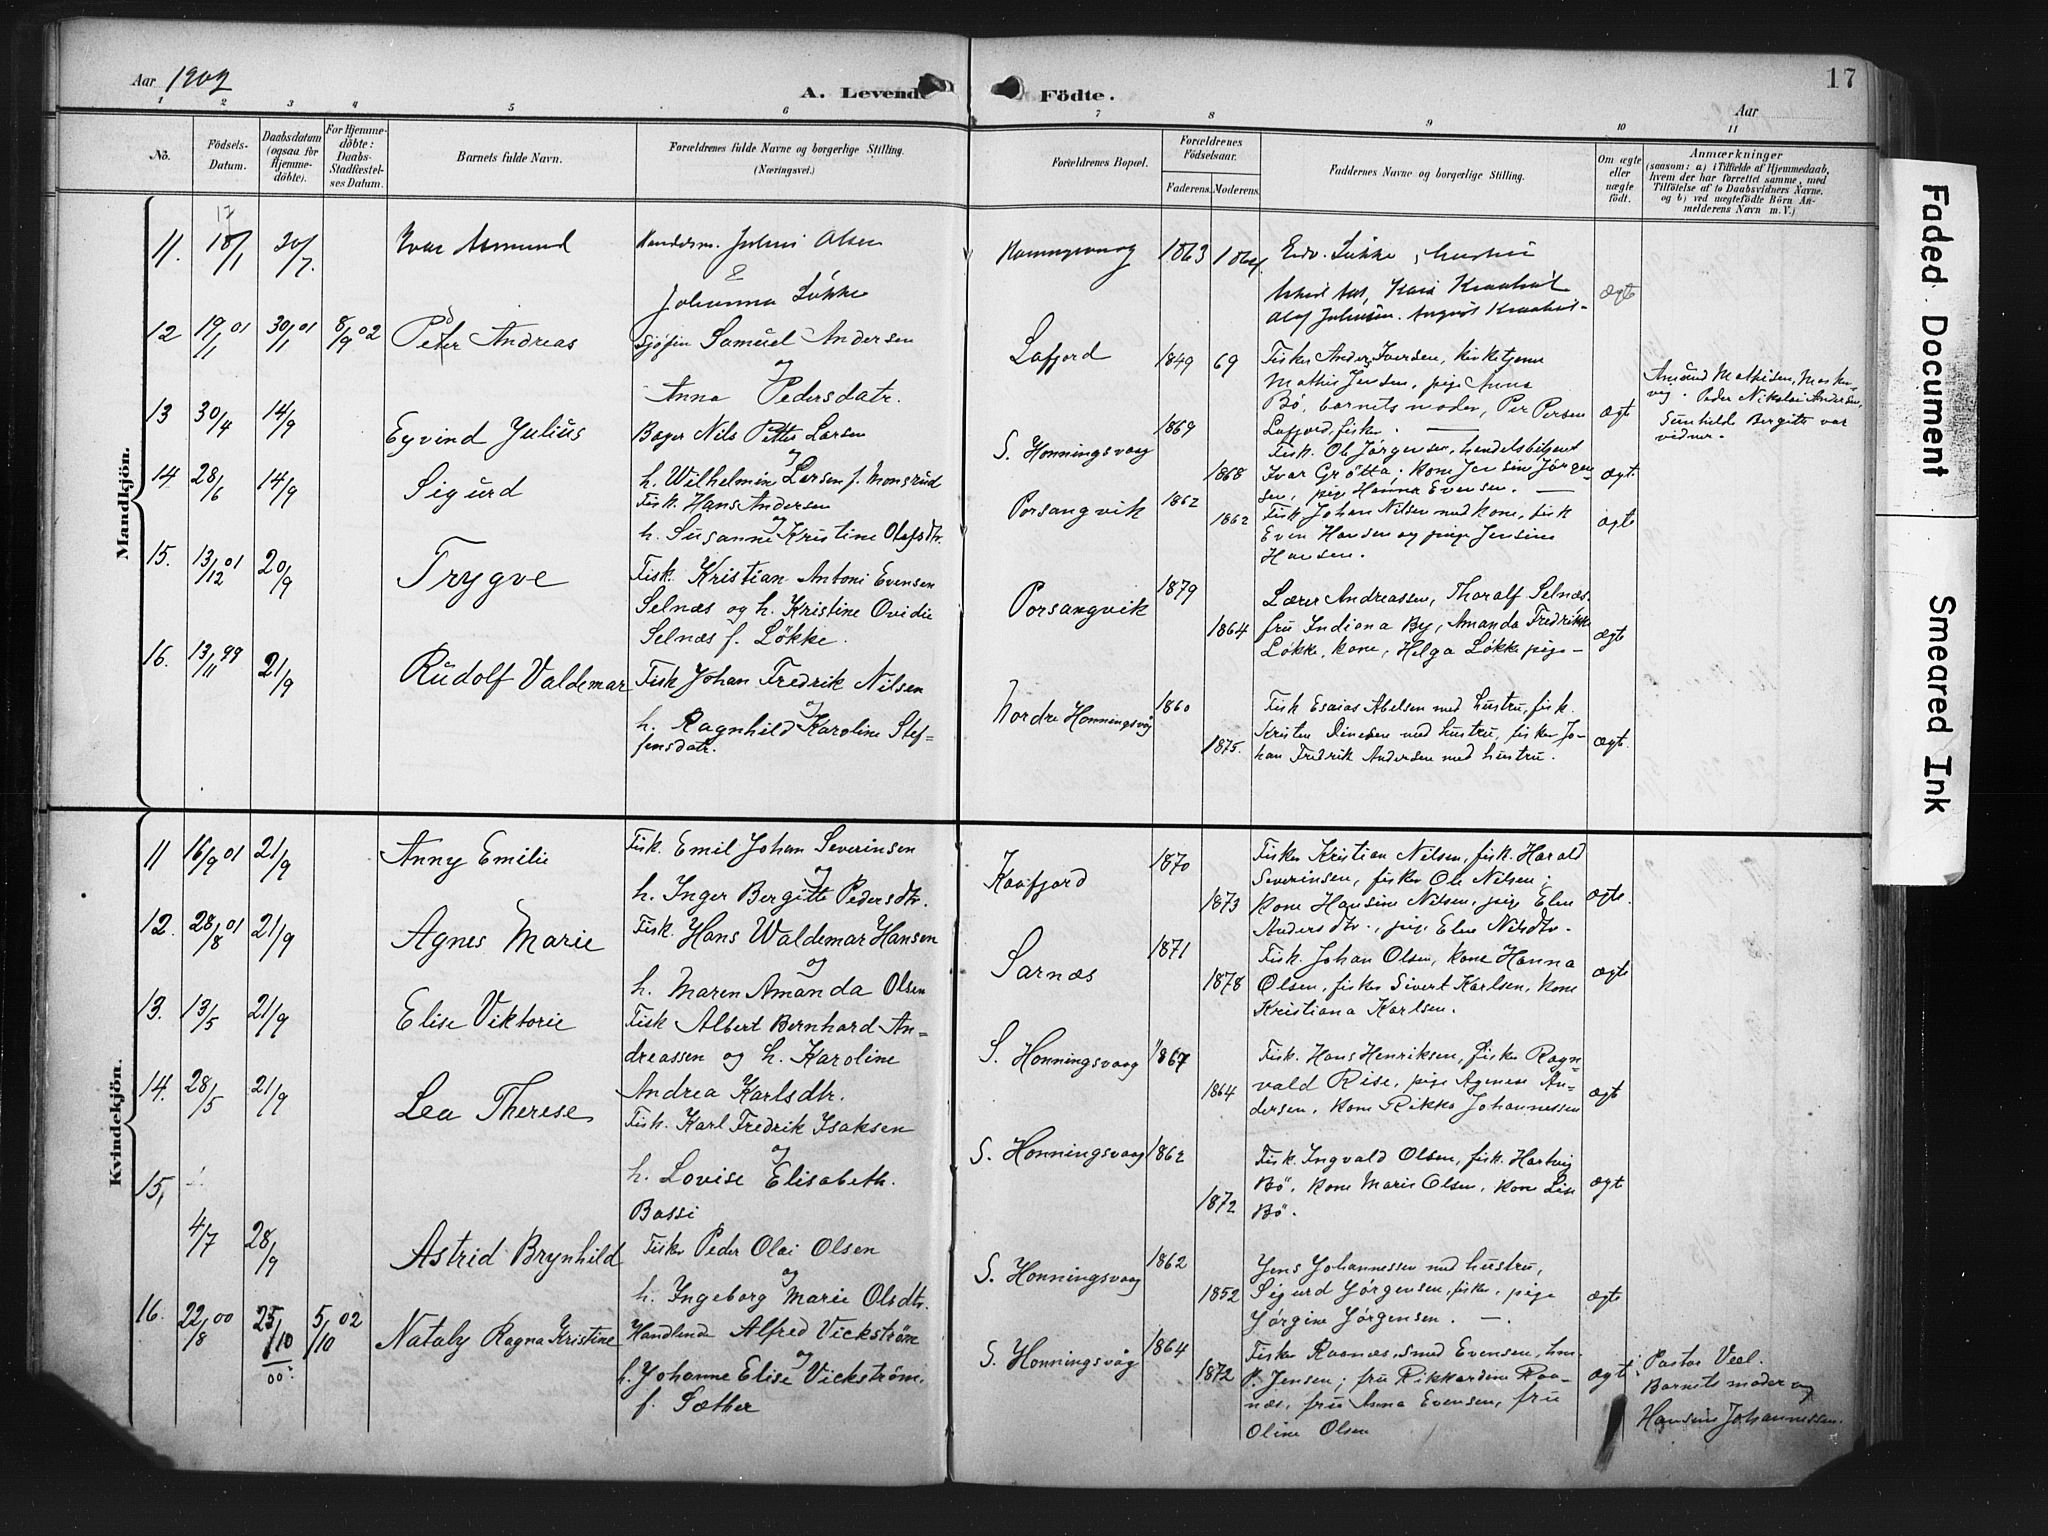 Aar 1902
A. Levende Födte.
Aar
17
1 2 3 4 5 6 7 8 9 10 11
No.
Födsels-Datum.
Daabsdatum (ogsaa for Hjemme-döbte).
For Hjemme-döbte: Daabs-Stadfæstel-ses Datum.
Barnets fulde Navn.
Forældrenes fulde Navne og borgerlige Stilling.
(Næringsvei.)
Forældrenes Bopæl.
Forældrenes Födselsaar.
Faderens. Moderens.
Faddernes Navne og borgerlige Stilling.
Om ægte eller uægte födt.
Anmærkninger
(saasom: a) i Tilfælde af Hjemmedaab,
hvem der har forrettet samme, med
Tilföielse af to Daabsvidners Navne,
og b) ved uægtefödte Börn An-
melderens Navn m. V.)
Mandkjön.
11. 17 18/1 20/7. Ivar Asmund
Julius Olsen
&
Johanna Løkke
Honningsvaag 1863 1864
Edv. Løkke, hustru
Olaf Johnsen. August
ægte
12 19/1 01 30/1 01 8/9 02 Peter Andreas
d
Sjøfin Samuel Andersen
og
Anna Pedersdatr.
Lafjord 1849 69
Fisker Anders Iversen, kirketjener
Mathis Jensen, pige Anna
Bö, barnets moder, Per Persen
Lafjord, fisker. —
ægte
Amund Mathisen,
Peder Nikolai Andersen,
Gunhilde Bergitte var
vidner.
13 30/4 14/9 Eyvind Julius
Bager Nils Petter Larsen
og
h. Wilhelmine Larsen f. Monsrud
S. Honningsvaag 1869 1868
Fisk. Ole Jørgensen, handelsbetjent
Ivar Grøtta, kone Jensine Jørgen-
sen, pige Hanna Evensen. —
ægte
14. 28/6 14/9 Sigurd
Fisk. Hans Andersen
og
h. Susanne Kristine Olafsdtr.
Porsangvik 1862 1862
Fisk. Johan Nilsen med kone, fisk
Even Hansen og pige Jensine
Hansen.
ægte
15. 13/12 01 20/9 Trygve
Fisk. Kristian Antoni Evensen
Selnæs og h. Kristine Ovidie
Selnæs f. Løkke.
Porsangvik 1879 1864
Lærer Andreassen, Thoralf Selnæs,
fru Indiana By, Amanda Fredrikke
Løkke, kone, Helga Løkke pige —
ægte
16. 13/11 99 21/9 Rudolf Valdemar
Fisk Johan Fredrik Nilsen
og
h. Ragnhild Karoline Stef-
fensdatr.
Nordre Honningsvåg 1860 1875.
Fisk Esaias Abelsen med hustru, fisk.
Kristen Dinesen med hustru, fisker Jo-
han Fredrik Andersen med hustru.
ægte
Kvindekjön.
11 16/9 01 21/9 Anny Emilie
Fisk. Emil Johan Severinsen
og
h. Inger Bergitte Pedersdtr.
Kaafjord 1870 1873
Fisker Kristian Nilsen, fisk. Harald
Severinsen, fisker Ole Nilsen,
kone Hansine Nilsen, pige Elen
Andersdtr., pige Elen Nilsdtr.
ægte.
12. 28/8 01 21/9 Agnes Marie
Fisk. Hans Waldemar Hansen
og
h. Maren Amanda Olsen
Sarnæs 1871 1878
Fisk. Johan Olsen, kone Hanna
Olsen, fisker Sivert Karlsen, kone
Kristiana Karlsen.
ægte
13. 13/5 21/9 Elise Viktorie
Fisk Albert Bernhard An-
dreassen og h. Karoline
Andrea Karlsdtr.
S. Honningsvaag 1867 1864
Fisk. Hans Henriksen, fisker Ragn-
vald Rise, pige Agnese An-
dersen, kone Rikke Johannessen
ægte
14. 28/5 21/9 Lea Therese
Fisk. Karl Fredrik Isaksen
og
h. Lovise Elisabeth
Bassi
S. Honningsvaag 1862 1872
Fisk. Ingvald Olsen, fisk. Hartvig
Bö, kone Marie Olsen, kone Lise
Bö.
ægte
15, 4/7 28/9 Astrid Brynhild
Fisker Peder Olai Olsen
og
h. Ingeborg Marie Olsdtr.
S. Honningsvaag 1862 1852
Jens Johannessen med hustru,
Sigurd Jørgensen, fisker, pige
Jørgine Jørgensen. —.
ægte
16. 22/8 00 25/10 00 5/10 02 Nataly Ragna Kristine
Handlende Alfred Vickström
og
h. Johanne Elise Vickström.
f. Sæther
S. Honningsvåg 1864 1872
Fisker Raanæs, smed Evensen,
P. Jensen, fru Rikkardine Raa-
næs, fru Anna Evensen, fru
Oline Olsen
ægte
Pastor Veel.
Barnets moder og
Hansine Johannessen.
Faded Document
Smeared Ink